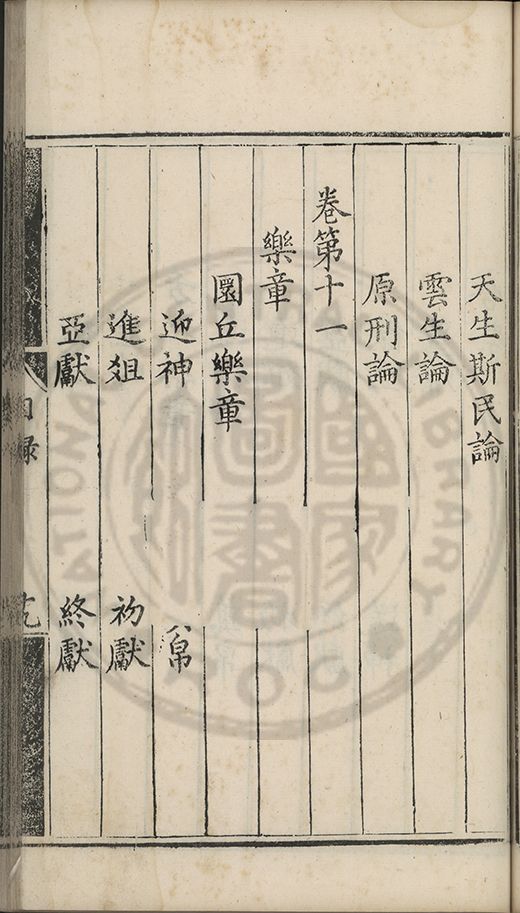 天生斯民論
雲生論
原刑論
卷第十一
樂章
圜丘樂章
迎神 帛
進俎 初獻
亞獻 終獻
目錄